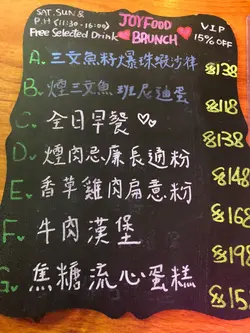 SAT. SUN &
P.H (11:30-16:00)
Free Selected Drink
JOYFOOD
BRUNCH
VIP
15% OFF
A. 三文魚籽爆珠蝦沙律 $138
B. 煙三文魚班尼迪蛋 $118
C. 全日早餐 $138
D. 煙肉忌廉長通粉 $148
E. 香草雞肉扇意粉 $168
F. 牛肉漢堡 $198
G. 焦糖流心蛋糕 $15